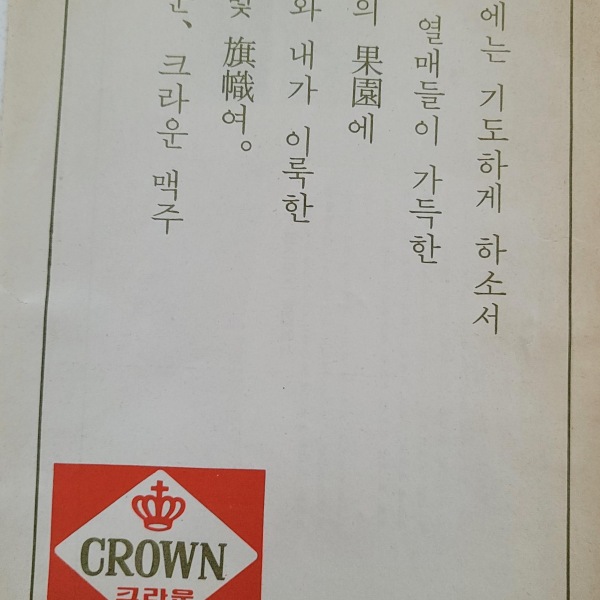 에는 기도하게 하소서
열매들이 가득한
의 果園에
와 내가 이룩한
빛 旗幟여。
운、크라운 맥주
CROWN
크라운